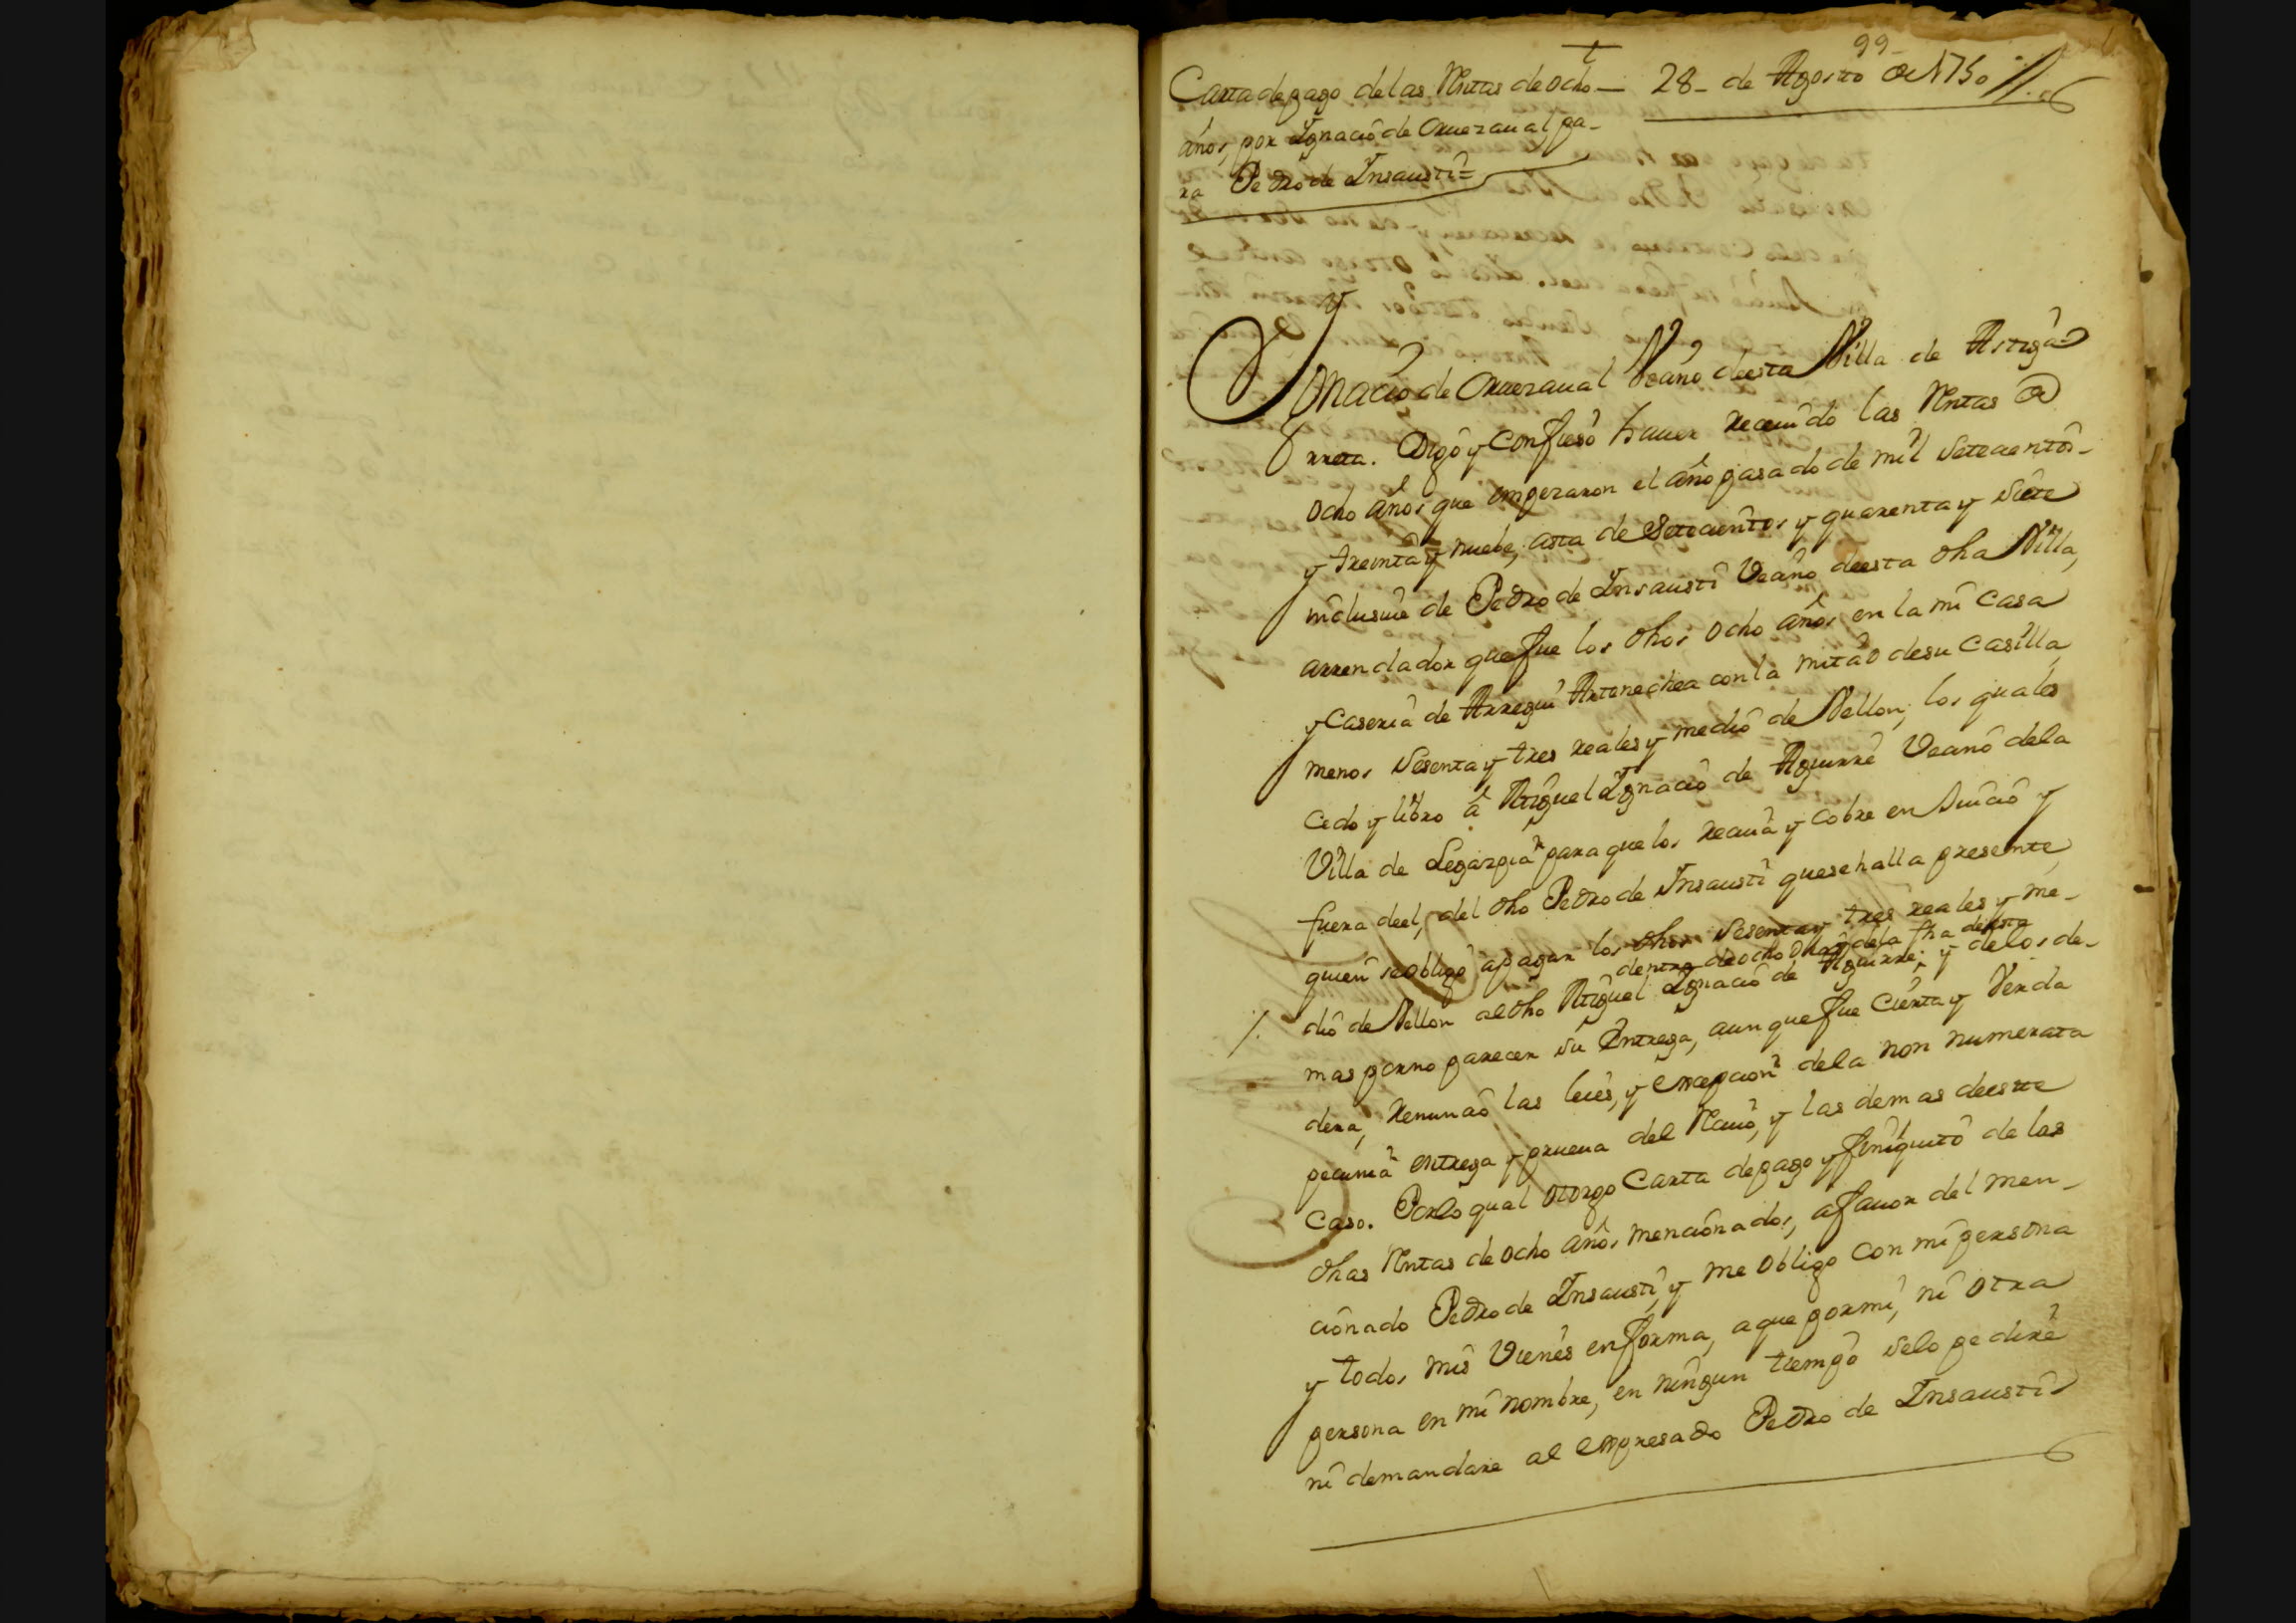 99
Carta de pago de las Rentas de ocho — 28 - de Agosto de 1750 //.
años, por Ygnacio de Oruezaual pa-
ra Pedro de Ynsausti =
Ygnacio de Oruezaual Vecino de esta Villa de Astiga-
rreta. Digo y Confieso hauer receuido las Rentas de
ocho años que empezaron el año pasado de mil setecientos -
y treinta y nuebe, asta de setecientos y quarenta y siete
inclusiue de Pedro de Ynsausti Vecino de esta dha Villa,
arrendador que fue los dhos ocho años en la mi Casa
y Caseria de Arregui Artenechea con la mitad de su Casilla,
menos Sesenta y tres reales y medio de Vellon, los quales
cedo y libro á Miguel Ygnacio de Aguirre Vecino de la
Villa de Legazpia para que los reciua y cobre en Juicio y
fuera deel, del dho Pedro de Ynsausti que se halla presente
quien se obligo a pagar los dhos Sesenta y tres reales y me-
dentro de ocho dias de la fha de esta
/. dio de Vellon al dho Miguel Ygnacio de Aguirre; y de los de-
mas por no parecer su Entrega, aunque fue Cierta y Verda
dera, Renuncio las leies, y excepcion de la non numerata
pecunia entrega y prueua del Reciuo, y las demas de este
Caso. Por lo qual otorgo Carta de pago y finiquito de las
dhas Rentas de ocho años mencionados, a fauor del men-
cionado Pedro de Ynsausti, y me obligo con mi persona
y todos mis Vienes en forma, a que por mi, ni otra
persona en mi nombre, en ningun tiempo selo pediré
ni demandare al expresado Pedro de Ynsausti